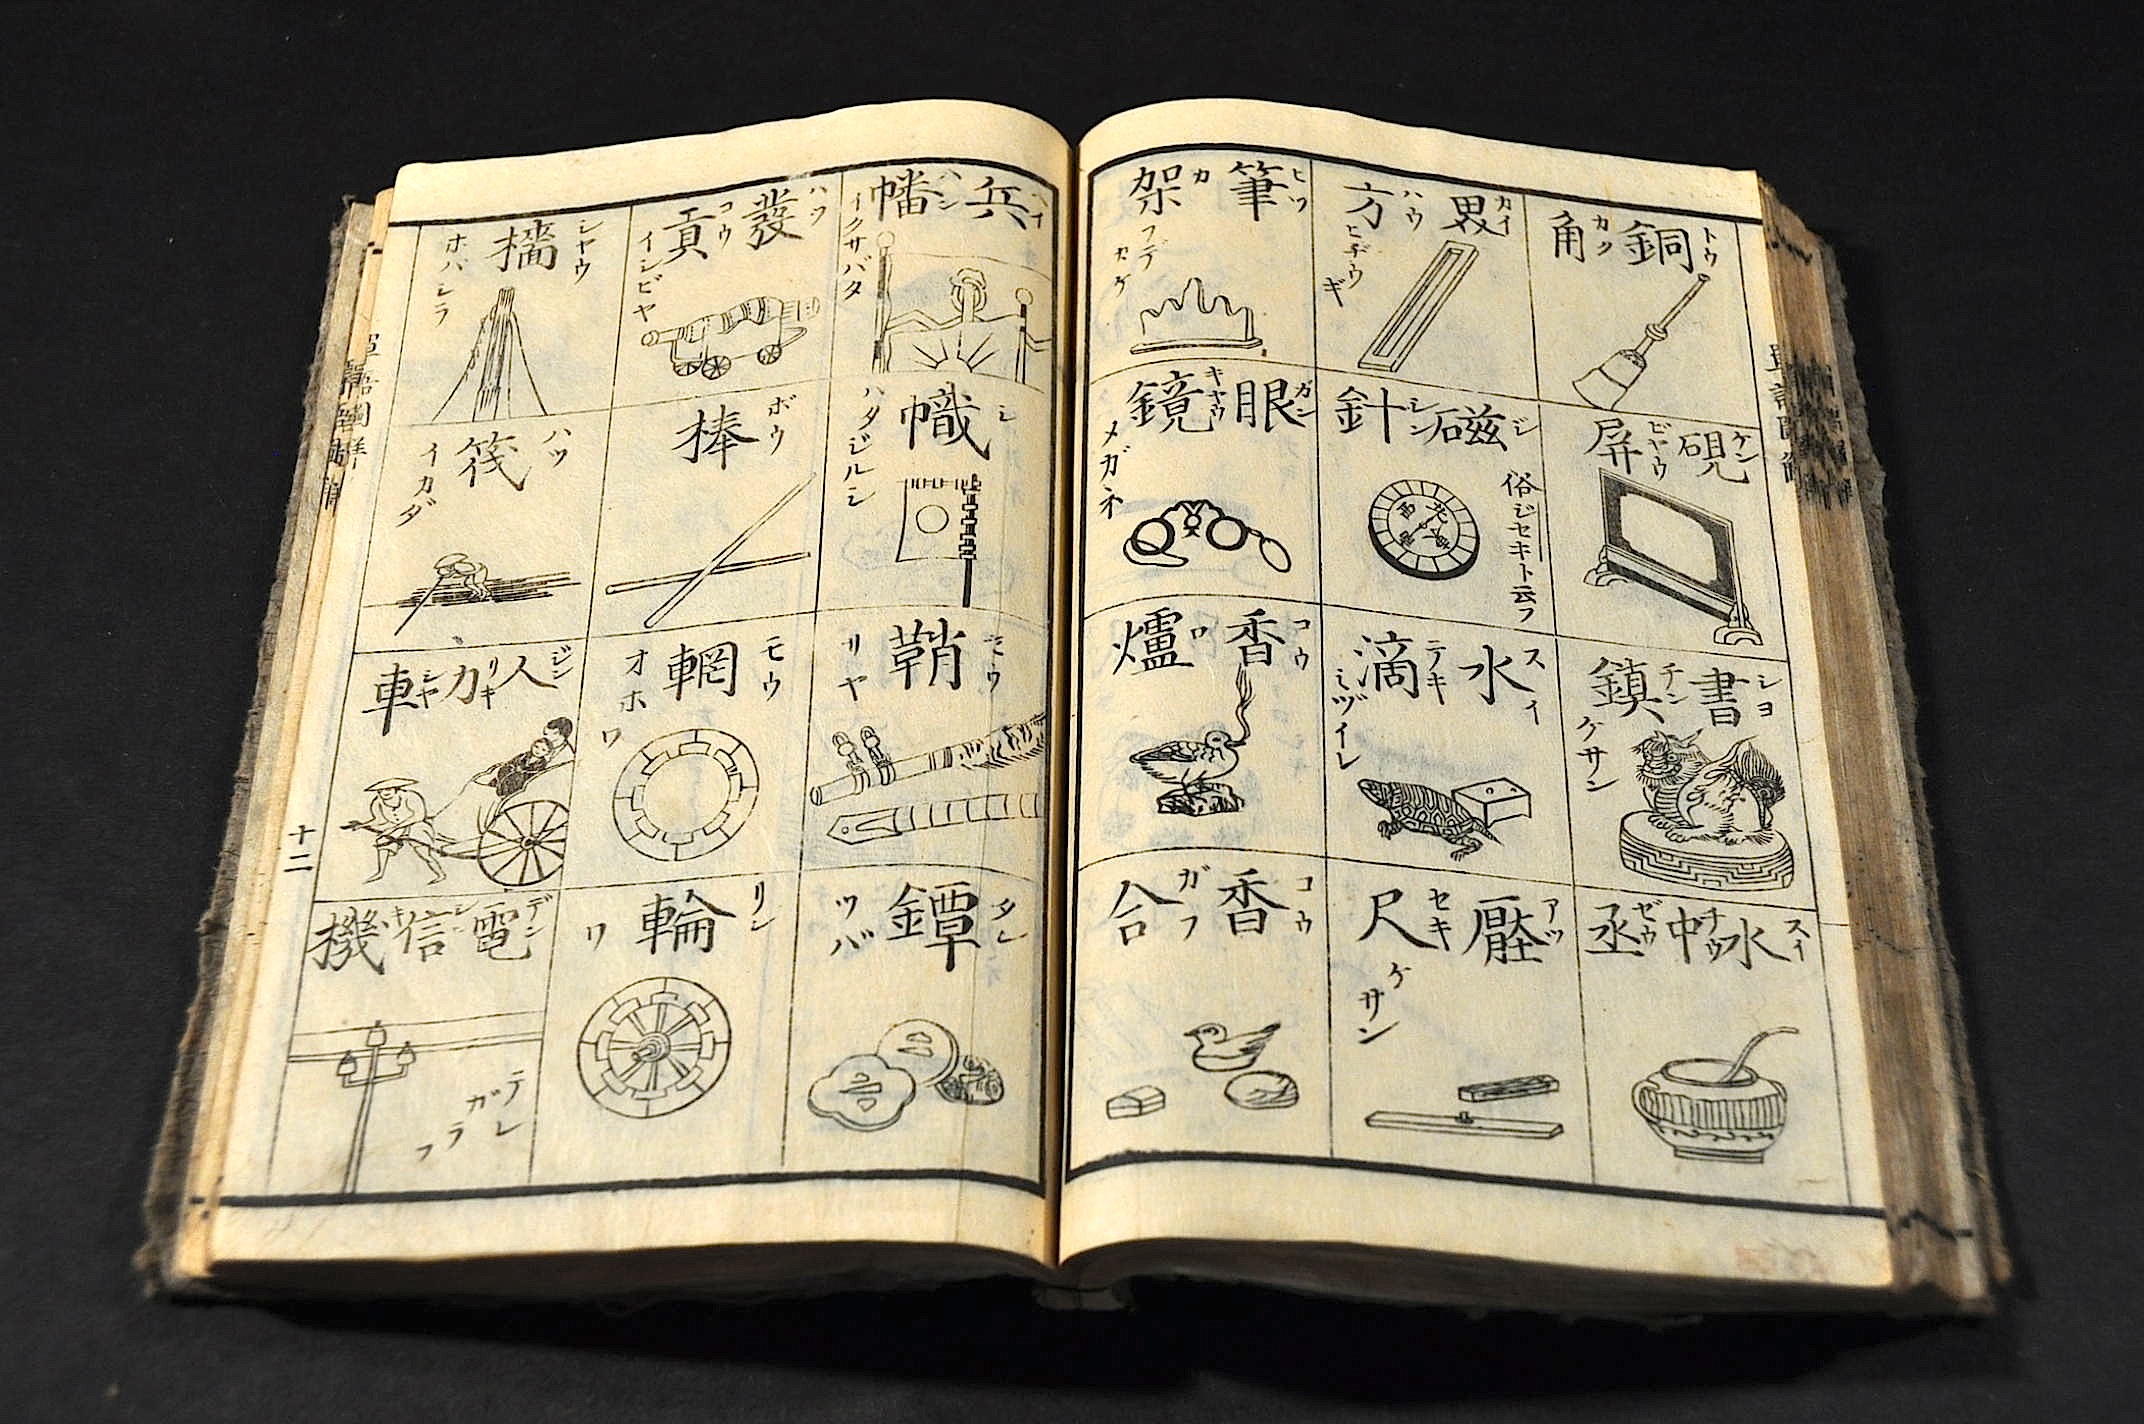 銅角 トウカク
界方 カイハウ ヒヂウギ
筆架 ヒツカ フデカケ
硯屏 ケンビヤウ
磁針 ジシン 俗ジセキト云フ
北 西
眼鏡 ガンキヤウ メガネ
書鎮 シヨチン ケサン
水滴 スイテキ ミヅイレ
香爐 コウロ
水中丞 スイチウゼウ
壓尺 アツセキ ケサン
香合 コウガフ
兵幡 ヘイハン イクサバタ
發貢 ハツコウ イシビヤ
檣 シヤウ ホバシラ
幟 シ ハタジルシ
棒 ボウ
筏 ハツ イカダ
鞘 サヤ
輞 モウ オホワ
人力車 ジンリキシヤ
鐔 タン ツバ
輪 リン ワ
電信機 デンシンキ テレガラフ
十二